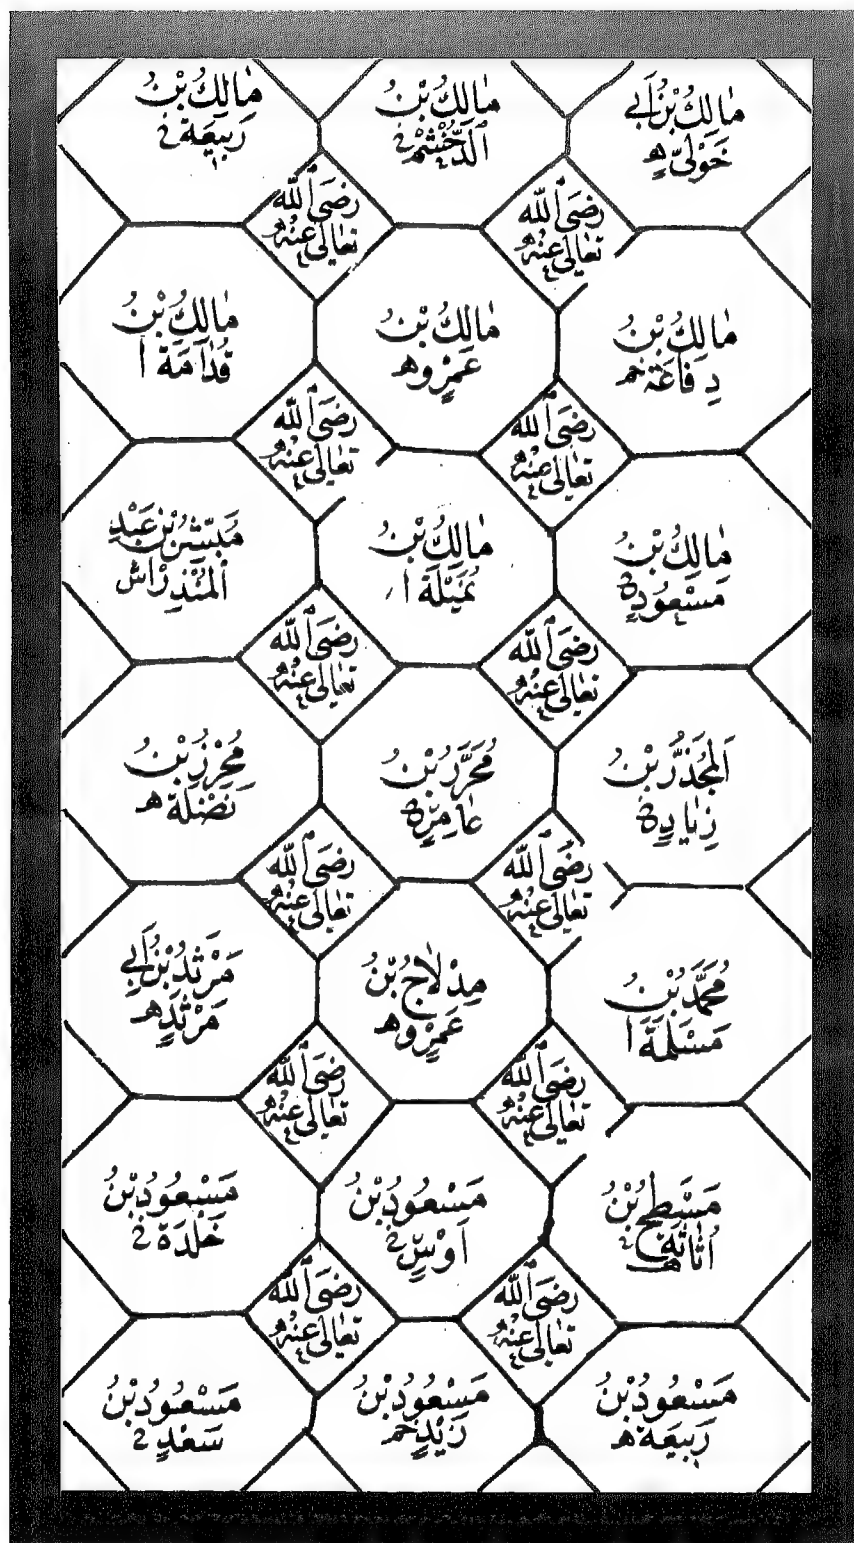 مَالِكُ بْنُ اَبِي
خَوْلِيٍّ ه
مَالِكُ بْنُ
الدُّخْشُمْ خ
مَالِكُ بْنُ
رَبِيعَة خ
رَضِيَ اللّٰه
تَعَالٰى عَنْهُ
رَضِيَ اللّٰه
تَعَالٰى عَنْهُ
مَالِكُ بْنُ
رِفَاعَة خم
مَالِكُ بْنُ
عَمْرٍو ه
مَالِكُ بْنُ
قُدَامَة ا
رَضِيَ اللّٰه
تَعَالٰى عَنْهُ
رَضِيَ اللّٰه
تَعَالٰى عَنْهُ
مَالِكُ بْنُ
مَسْعُودٍ
مَالِكُ بْنُ
نُمَيْلَة ا
مُبَشِّرُ بْنُ عَبْدِ
الْمُنْذِرْ اش
رَضِيَ اللّٰه
تَعَالٰى عَنْهُ
رَضِيَ اللّٰه
تَعَالٰى عَنْهُ
اَلْمُجَذَّرُ بْنُ
زِيَادٍ
مُحَرَّرُ بْنُ
عَامِرٍ
مُحْرِزُ بْنُ
نَضْلَة ه
رَضِيَ اللّٰه
تَعَالٰى عَنْهُ
رَضِيَ اللّٰه
تَعَالٰى عَنْهُ
مُحَمَّدُ بْنُ
مَسْلَمَةَ ا
مِدْلَاجُ بْنُ
عَمْرٍو ه
مَرْثَدُ بْنُ اَبِي
مَرْثَدٍ ه
رَضِيَ اللّٰه
تَعَالٰى عَنْهُ
رَضِيَ اللّٰه
تَعَالٰى عَنْهُ
مَسْطَحُ بْنُ
اُثَاثَة ه
مَسْعُودُ بْنُ
اَوْسٍ
مَسْعُودُ بْنُ
خَلْدَة
رَضِيَ اللّٰه
تَعَالٰى عَنْهُ
رَضِيَ اللّٰه
تَعَالٰى عَنْهُ
مَسْعُودُ بْنُ
رَبِيعَة ه
مَسْعُودُ بْنُ
زَيْدٍ خم
مَسْعُودُ بْنُ
سَعْدٍ